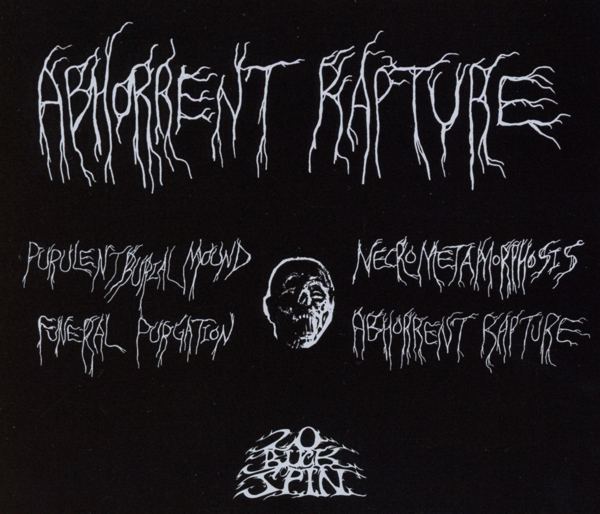 ABHORRENT RAPTURE
PURULENT BURIAL MOUND
FUNERAL PURGATION
NECROMETAMORPHOSIS
ABHORRENT RAPTURE
20
BUCK
SPIN